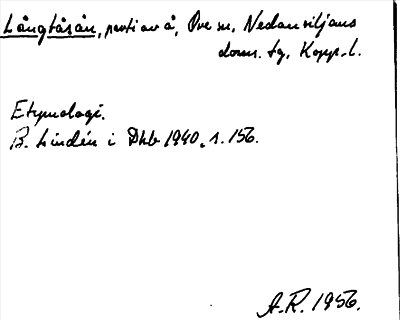 Långtåsån, parti av å, Ore sn, Nedansiljans
doms. tg, Kopp. l.
Etymologi.
B. Lindén i Dhb 1940, s. 156.
A.R. 1956.